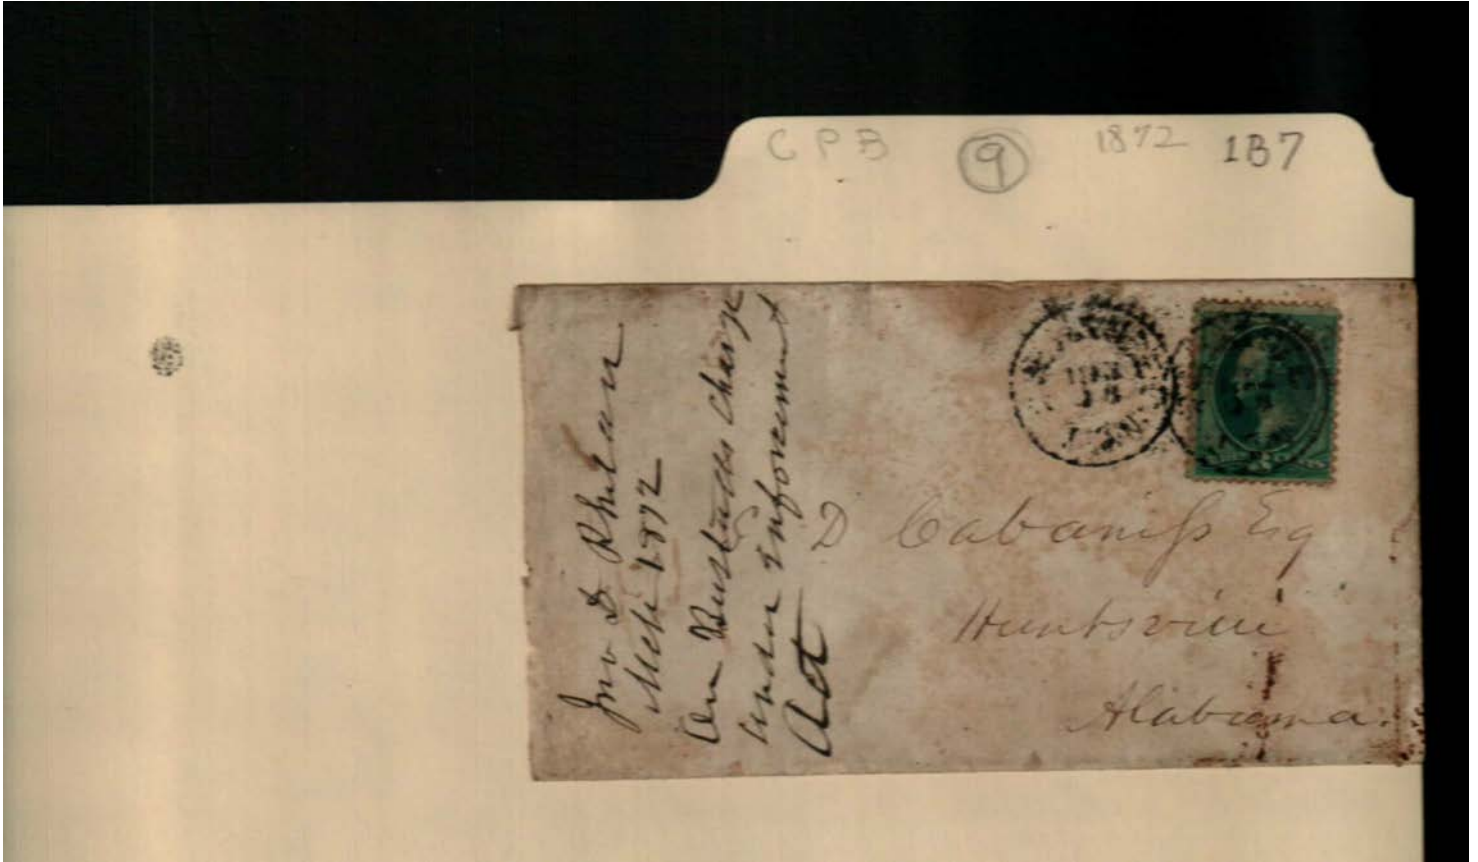 CPB 9 1872 1B7
Jno D. Phelan
Mch 1872
on Busteeds Charge
under Enforcement
Act
D Cabaniss Esq
Huntsville
Alabama.